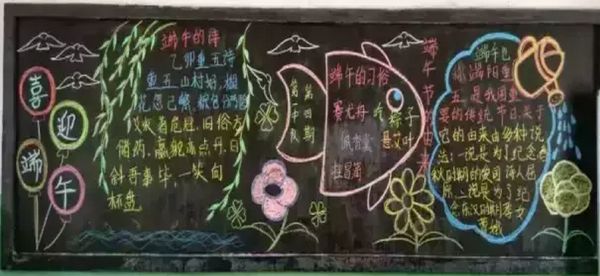 喜
迎
端
午
端午的诗
乙卯重五诗
重五山村好,榴
花忽已繁,粽包分两髻
艾束着危冠,旧俗方
储药,羸躯亦点丹,日
斜吾事毕,一笑向
杯盘
第
期
端午的习俗
赛龙舟 吃粽子
佩香囊 悬艾叶
拴冒
端午节的由来
端午也
称端阳重
五是我国重
要的传统节日,关于
它的由来由多种说
法:一说是为了纪念春
秋时期的爱国诗人屈
原。二说是为了纪
念东汉的期孝女
曹娥